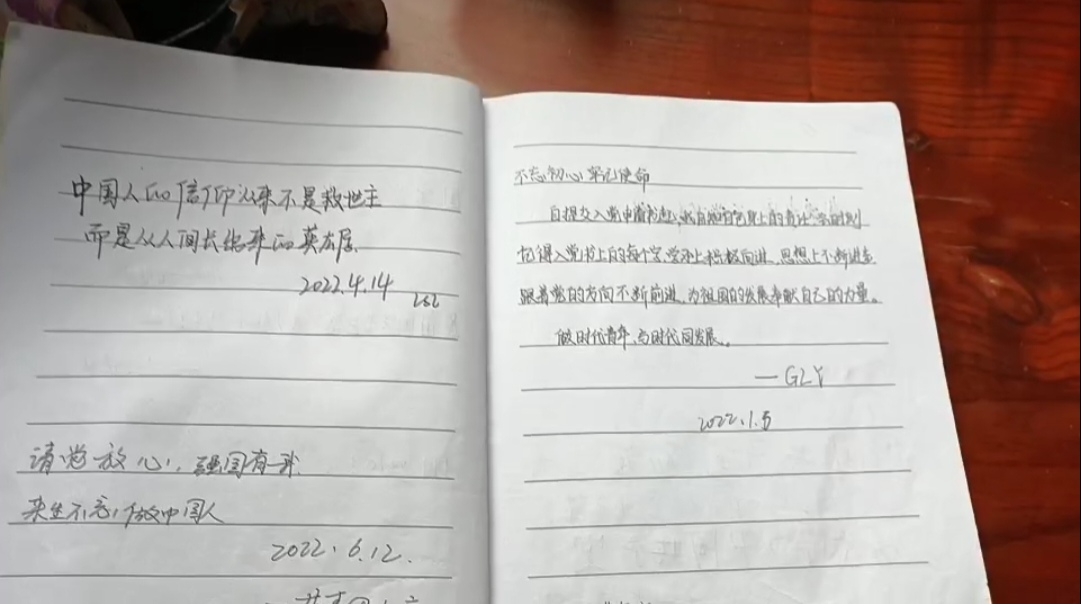 中国人的信仰从来不是救世主
而是从人间长出来的英才层
2022.4.14
LSL
请党放心,强国有我
来生不忘,做中国人
2022.6.12.
不忘初心,牢记使命
自提交入党申请书起,我自知身上的责任,会时刻
记得入党书上的每个字,学习上积极向进,思想上不断进步
跟着党的方向不断前进,为祖国的发展奉献自己的力量。
做时代青年,与时代同发展。
—GLY
2022.1.5